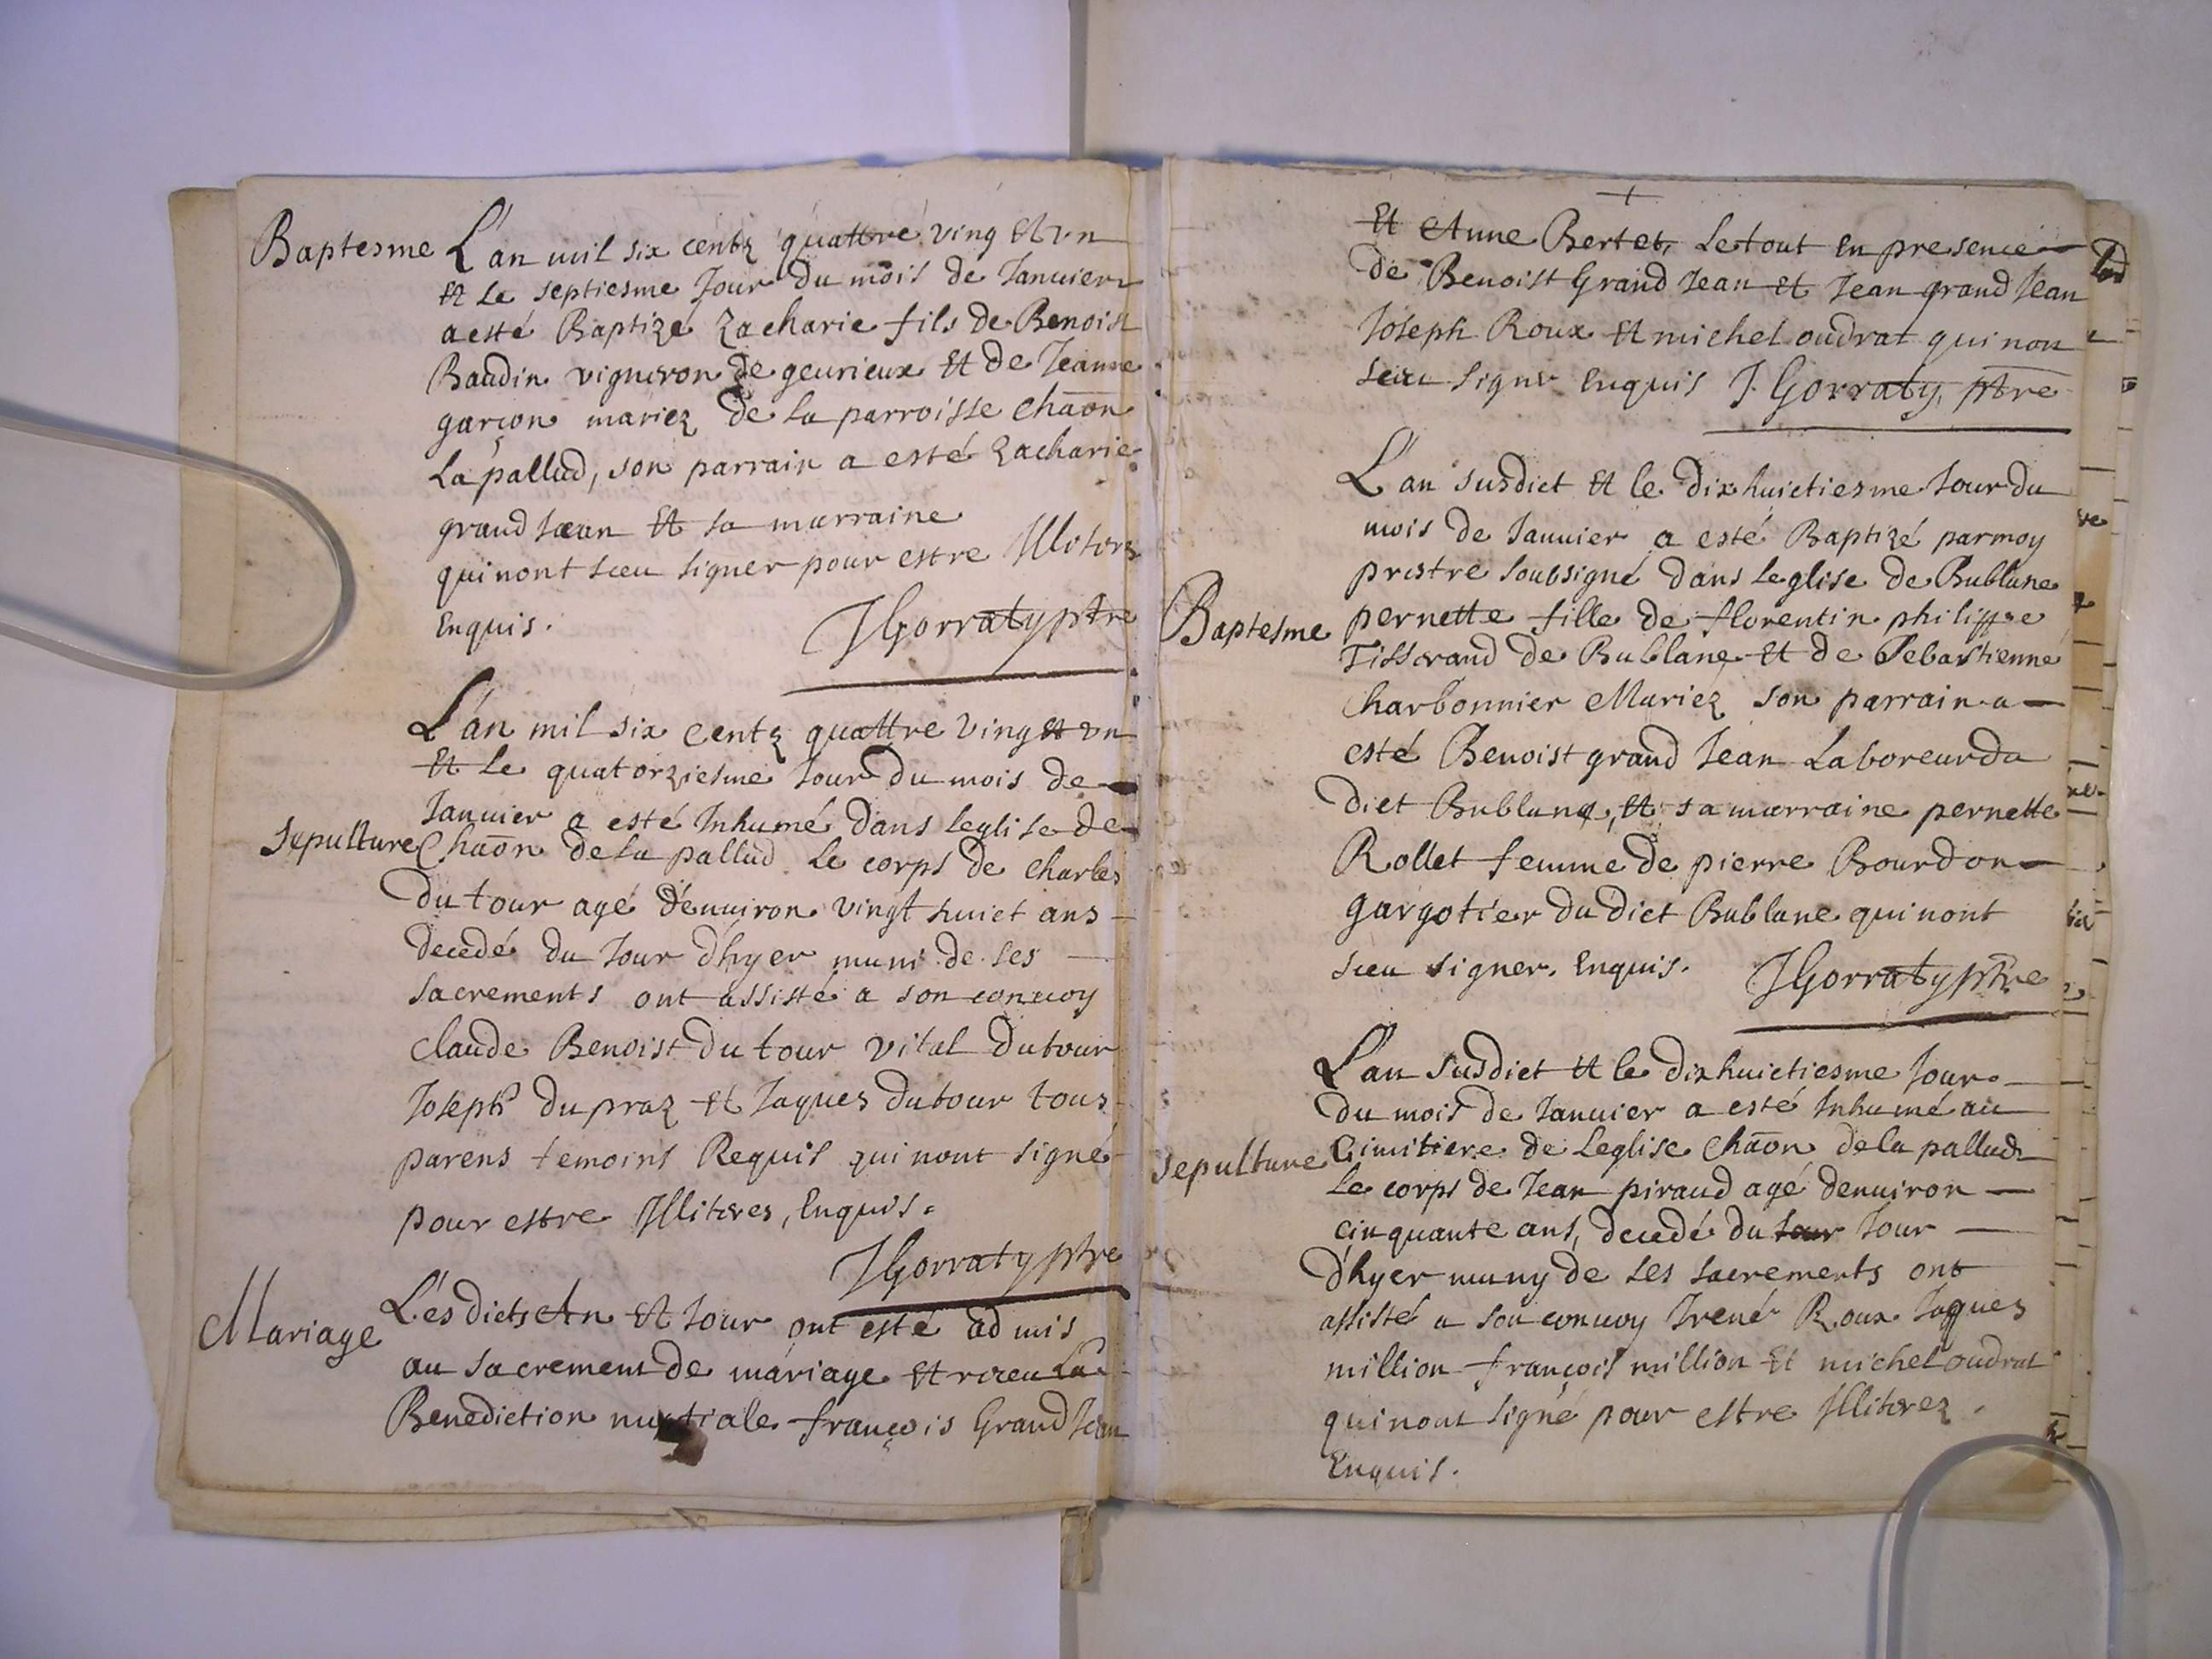 Baptesme
L'an mil six centz quattre ving et un
et le septiesme Jour du mois de Januier
a esté Baptizé Zacharie fils de Benoist
Baudin vigneron de geurieux et de Jeanne
garçon mariez de la parroisse chãon
La pallud, son parrain a esté Zacharie
grand Jean et sa marraine
qui nont sceu signer pour estre Illiterez
Enquis.
JGorraty ptre
L'an mil six centz quattre ving et un
et le quatorziesme Jour du mois de
Januier a esté Inhumé dans leglise de
Sepulture
Chãon de la pallud le corps de charles
du tour agé d'enuiron vingt huict ans
decedé du Jour d'hyer muni de ses
sacrements ont assisté a son conuoy
claude Benoist du tour vital dutour
Joseph du praz et Jaques dutour tous
parens temoins Requis qui nont signé
pour estre Illiteres, Enquis.
JGorraty ptre
Mariage
Les dicts An et Jour ont esté admis
au sacrement de mariage et receu La
Benediction nuptiale françois Grand Jean
et Anne Bertet, Le tout en presence
de Benoist Grand Jean et Jean grand Jean
Joseph Roux et michel oudrat qui non
sceu signer Enquis J. Gorraty, ptre
L'an susdict et le dixhuictiesme Jour du
mois de Januier a esté Baptizé par moy
prestre soubsigné dans leglise de Bublane
Baptesme
pernette fille de florentin philippe
Tisserand de Bublane et de Sebastienne
Charbonnier Mariez son parrain a
esté Benoist grand Jean Laboreur du
dict Bublane, et sa marraine pernette
Rollet femme de pierre Bourdon
gargotier du dict Bublane qui nont
sceu signer. Enquis. JGorraty ptre
L'an susdict et le dixhuictiesme Jour
du mois de Januier a esté Inhumé au
Sepulture
Cimitiere de Leglise chãon de la pallud
Le corps de Jean piraud agé denuiron
cinquante ans, decedé du Jour
d'hyer muny de ses sacrements ont
assisté a son conuoy Irené Roux Jaques
million françois million et michel oudrat
qui nont signé pour estre Illiterez.
Enquis.